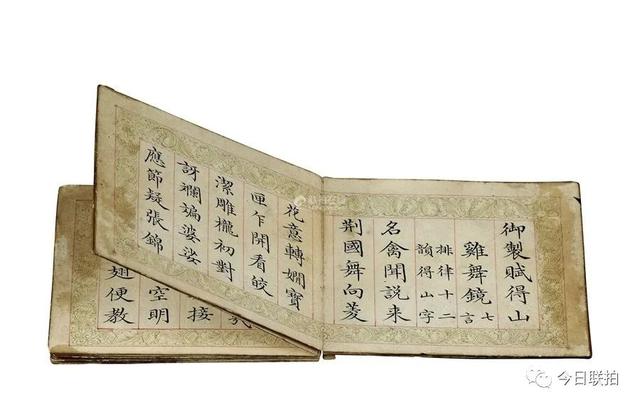 御製賦得山
雞舞鏡七言
排律十二
韻得山字
名禽聞説来
荆國舞向菱
花意轉嫺寳
匣乍開看皎
潔雕櫳初對
訝斕斒婆娑
應節疑張錦
接
空明
翅便教
今日联拍